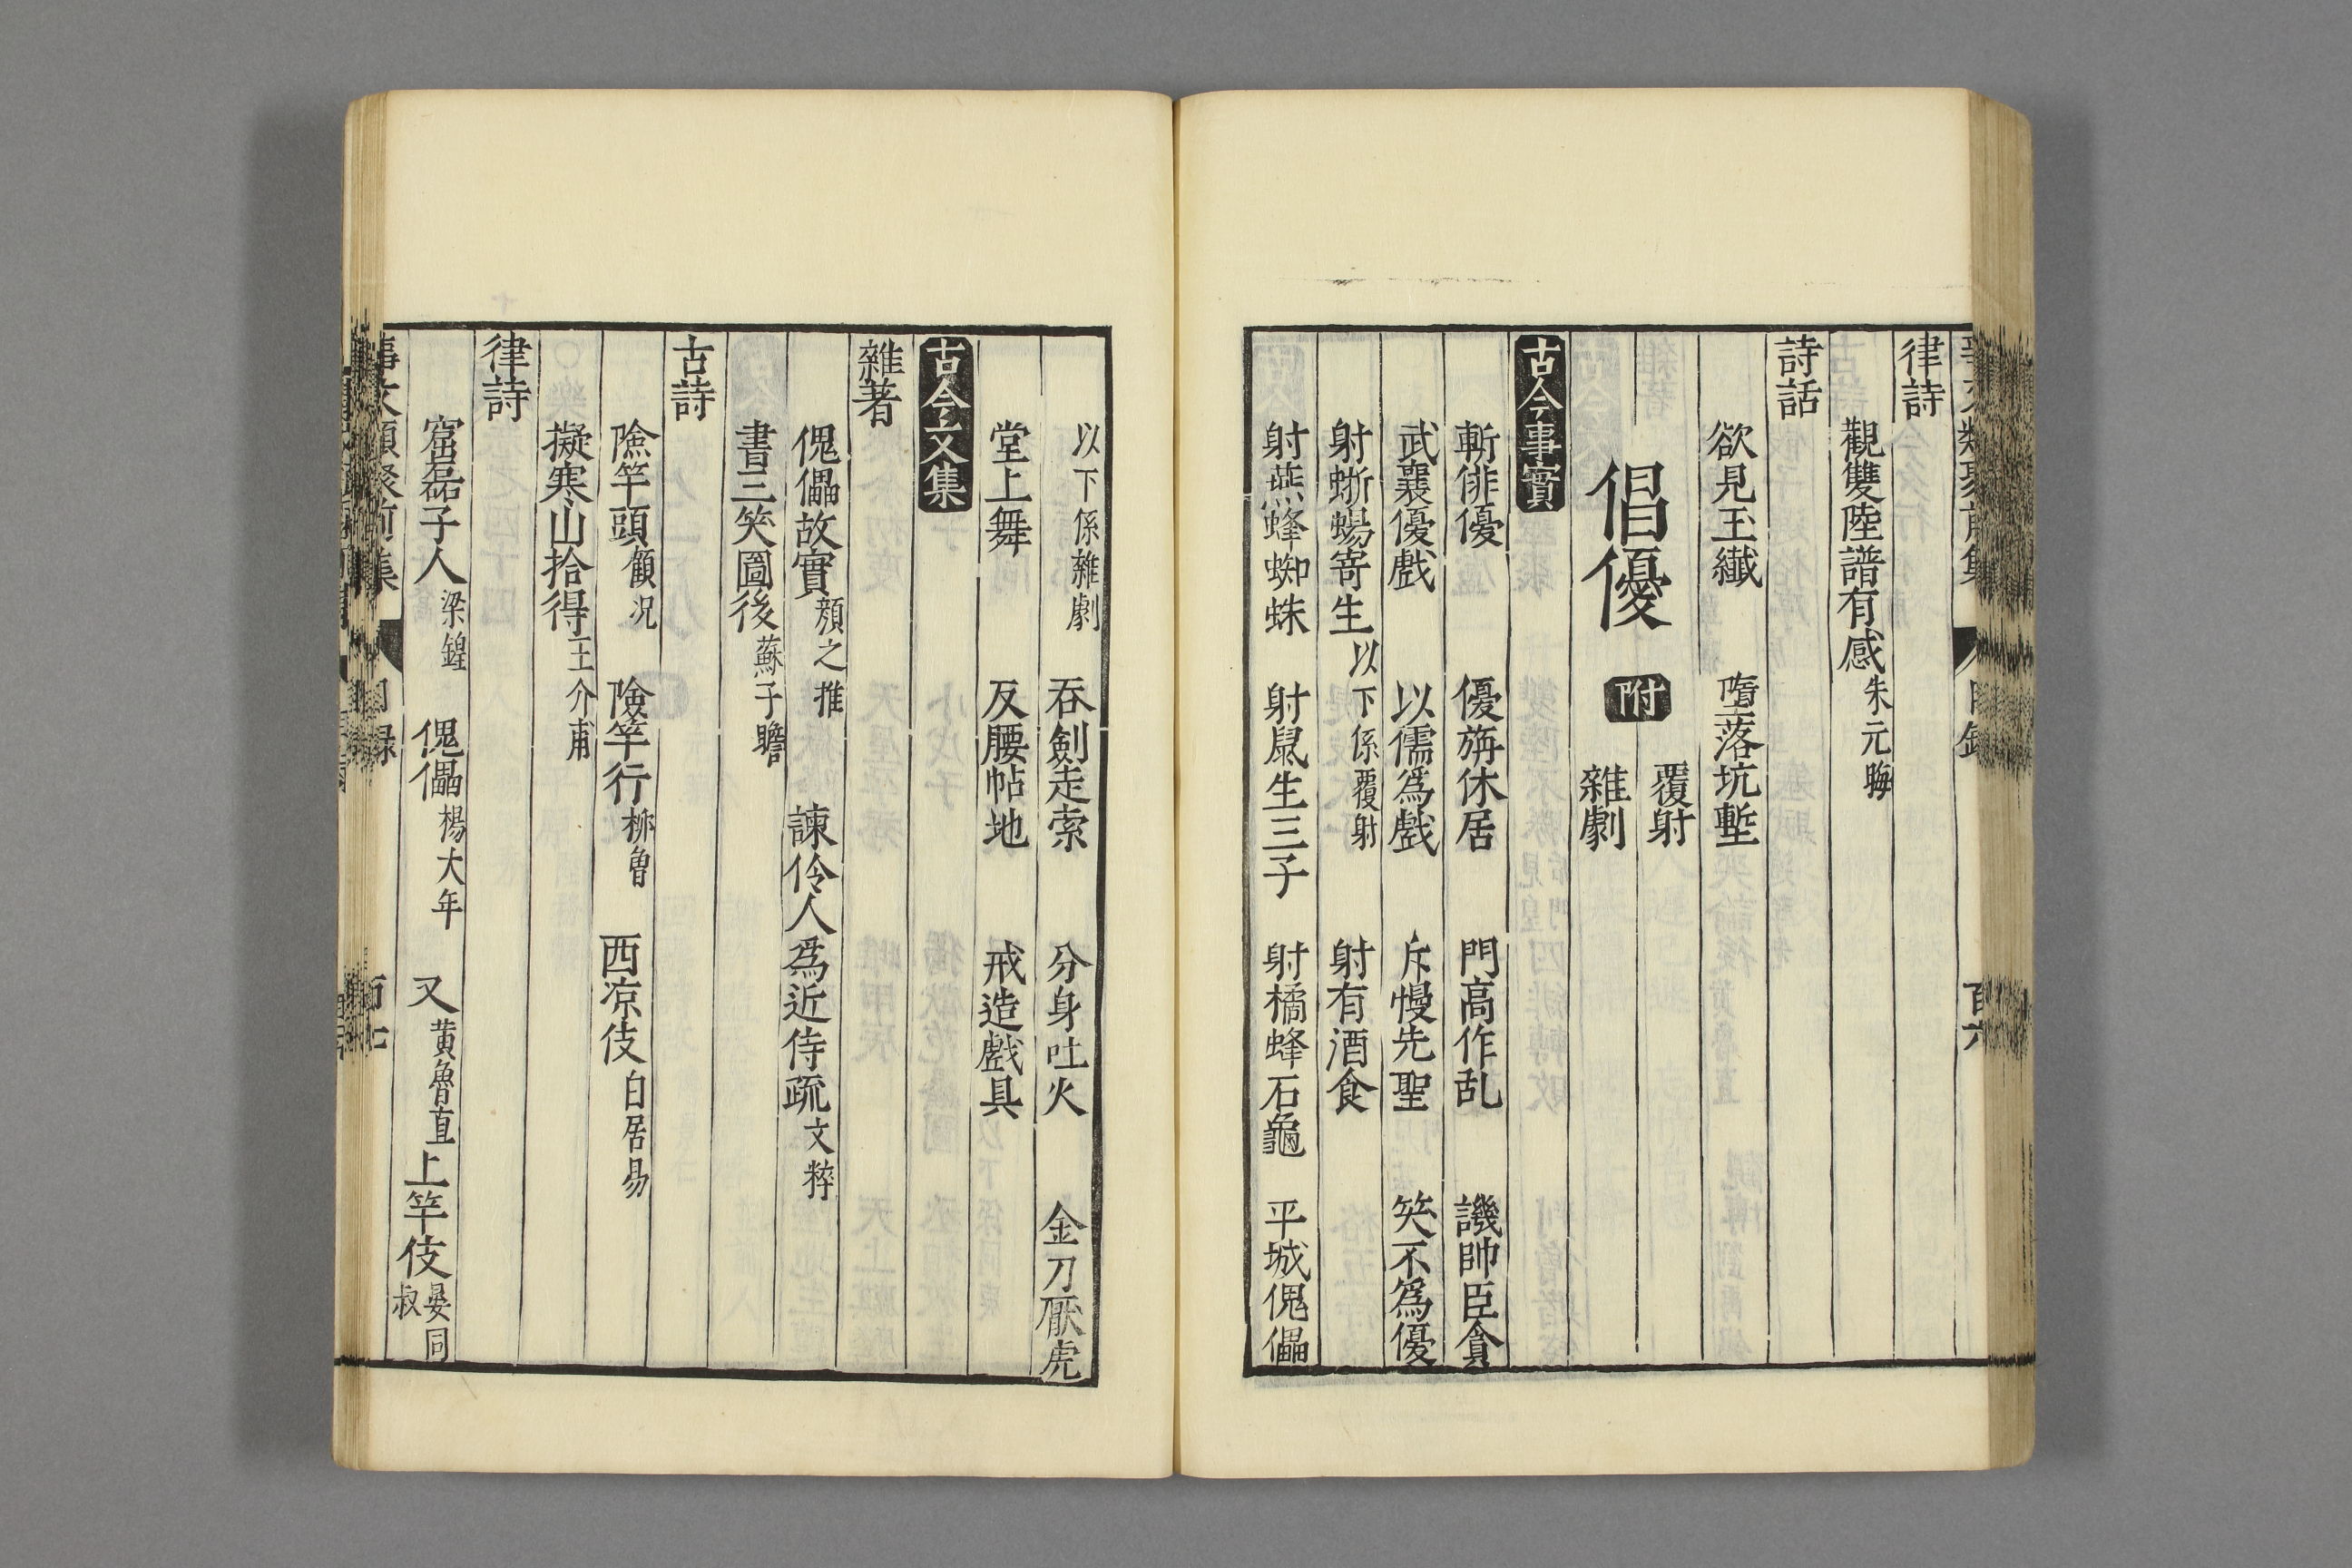 律詩
觀雙陸譜有感朱元晦
詩話
欲見玉纎 墮落坑塹
倡優 附 覆射 雜劇
古今事實
斬俳優 優旃休居 門高作乱 譏帥臣貪
武襄優戲 以儒爲戲 斥慢先聖 笑不爲優
射蜥蜴寄生以下係覆射 射有酒食
射燕蜂蜘蛛 射鼠生三子 射橘蜂石龜 平城傀儡
以下係雜劇 吞劍走索 分身吐火 金刀厭虎
堂上舞 反腰帖地 戒造戲具
古今文集
雜著
傀儡故實顏之推 諫伶人爲近侍疏文粹
書三笑圖後蘇子瞻
古詩
險竿頭顧况 險竿行柳曾 西凉伎白居易
擬寒山拾得王介甫
律詩
窟磊子人梁鍠 傀儡楊大年 又黄魯直 上竿伎晏同叔
事文類聚前集 目録 百七